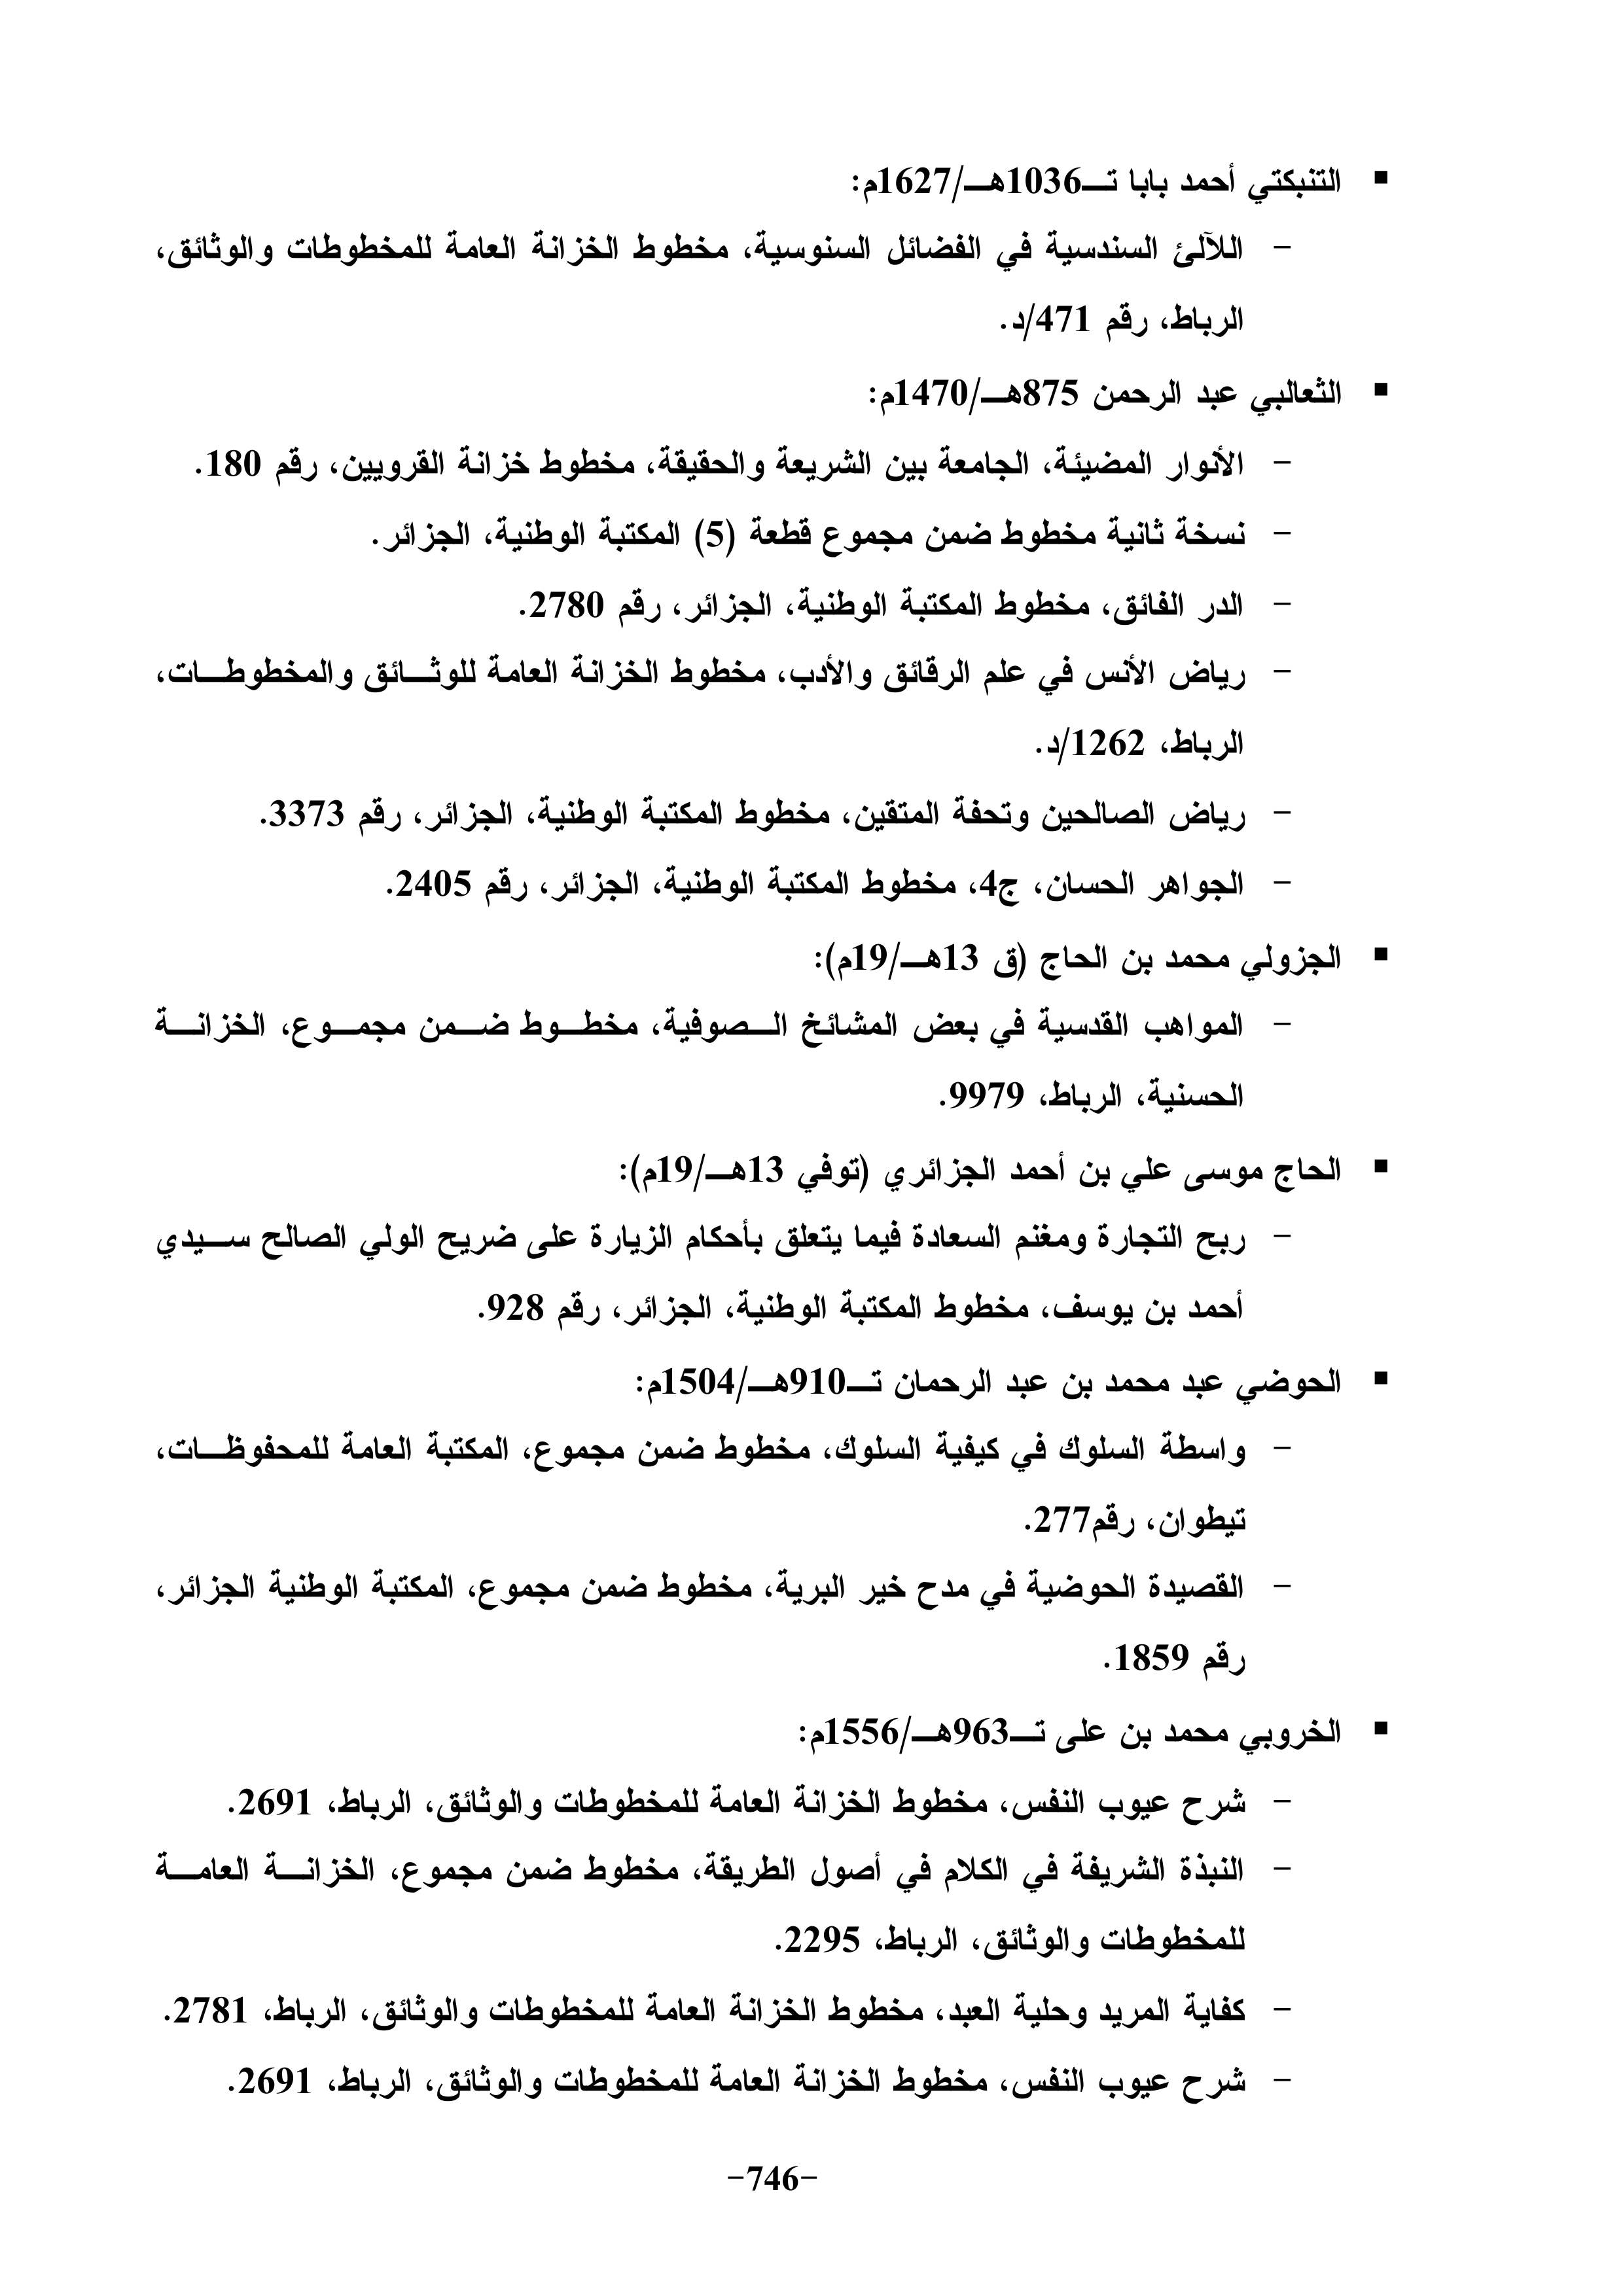 ▪ التنبكتي أحمد بابا تـ1036هـ/1627م:
- اللآلئ السندسية في الفضائل السنوسية، مخطوط الخزانة العامة للمخطوطات والوثائق،
الرباط، رقم 471/د.
▪ الثعالبي عبد الرحمن 875هـ/1470م:
- الأنوار المضيئة، الجامعة بين الشريعة والحقيقة، مخطوط خزانة القرويين، رقم 180.
- نسخة ثانية مخطوط ضمن مجموع قطعة (5) المكتبة الوطنية، الجزائر.
- الدر الفائق، مخطوط المكتبة الوطنية، الجزائر، رقم 2780.
- رياض الأنس في علم الرقائق والأدب، مخطوط الخزانة العامة للوثـائق والمخطوطـات،
الرباط، 1262/د.
- رياض الصالحين وتحفة المتقين، مخطوط المكتبة الوطنية، الجزائر، رقم 3373.
- الجواهر الحسان، ج4، مخطوط المكتبة الوطنية، الجزائر، رقم 2405.
▪ الجزولي محمد بن الحاج (ق 13هـ/19م):
- المواهب القدسية في بعض المشائخ الـصوفية، مخطـوط ضـمن مجمـوع، الخزانـة
الحسنية، الرباط، 9979.
▪ الحاج موسى علي بن أحمد الجزائري (توفي 13هـ/19م):
- ربح التجارة ومغنم السعادة فيما يتعلق بأحكام الزيارة على ضريح الولي الصالح سـيدي
أحمد بن يوسف، مخطوط المكتبة الوطنية، الجزائر، رقم 928.
▪ الحوضي عبد محمد بن عبد الرحمان تـ910هـ/1504م:
- واسطة السلوك في كيفية السلوك، مخطوط ضمن مجموع، المكتبة العامة للمحفوظـات،
تيطوان، رقم277.
- القصيدة الحوضية في مدح خير البرية، مخطوط ضمن مجموع، المكتبة الوطنية الجزائر،
رقم 1859.
▪ الخروبي محمد بن على تـ963هـ/1556م:
- شرح عيوب النفس، مخطوط الخزانة العامة للمخطوطات والوثائق، الرباط، 2691.
- النبذة الشريفة في الكلام في أصول الطريقة، مخطوط ضمن مجموع، الخزانـة العامـة
للمخطوطات والوثائق، الرباط، 2295.
- كفاية المريد وحلية العبد، مخطوط الخزانة العامة للمخطوطات والوثائق، الرباط، 2781.
- شرح عيوب النفس، مخطوط الخزانة العامة للمخطوطات والوثائق، الرباط، 2691.
-746-